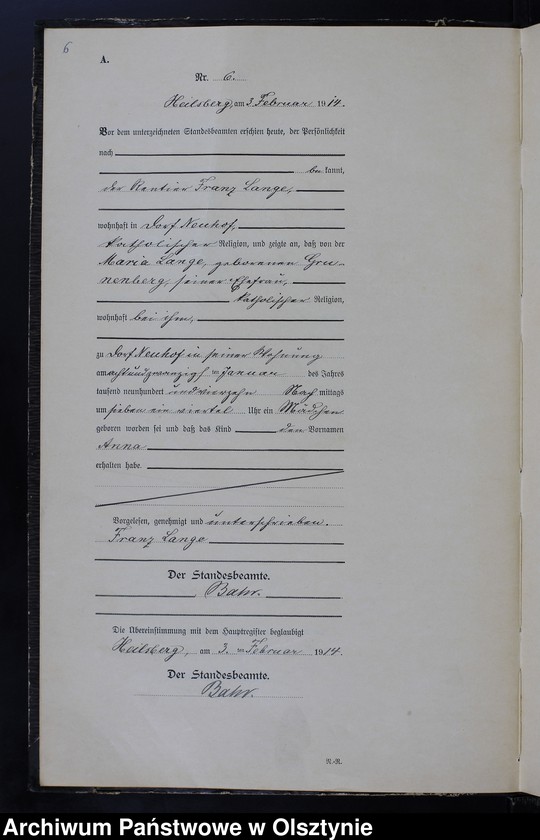 6
A.
Nr. 6.
Heilsberg, am 3. Februar 1914.
Vor dem unterzeichneten Standesbeamten erschien heute, der Persönlichkeit
nach
bekannt,
der Rentier Franz Lange,
wohnhaft in Dorf Neuhof,
katholischer Religion, und zeigte an, daß von der
Maria Lange, geborenen Gru-
nenberg, seiner Ehefrau,
katholischer Religion,
wohnhaft bei ihm,
zu Dorf Neuhof in seiner Wohnung
am achtundzwanzigsten Januar des Jahres
tausend neunhundert und vierzehn Nachmittags
um sieben ein viertel Uhr ein Mädchen
geboren worden sei und daß das Kind den Vornamen
Anna
erhalten habe.
Vorgelesen, genehmigt und unterschrieben.
Franz Lange
Der Standesbeamte.
Bahr.
Die Übereinstimmung mit dem Hauptregister beglaubigt
Heilsberg, am 3. Februar 1914.
Der Standesbeamte.
Bahr.
R.-R.
Archiwum Państwowe w Olsztynie